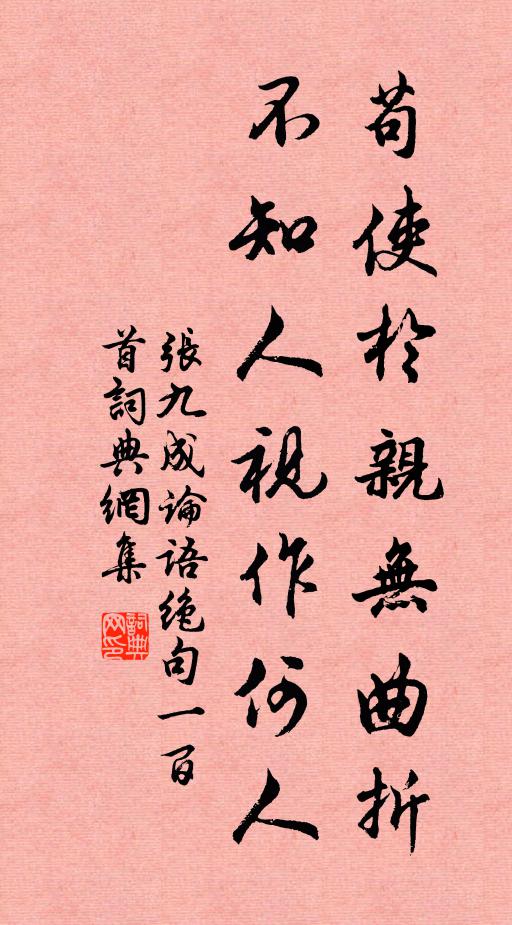 苟使於親無曲折
不知人視作何人
張九成論語绝句一百
首詞典網集
詞典网印